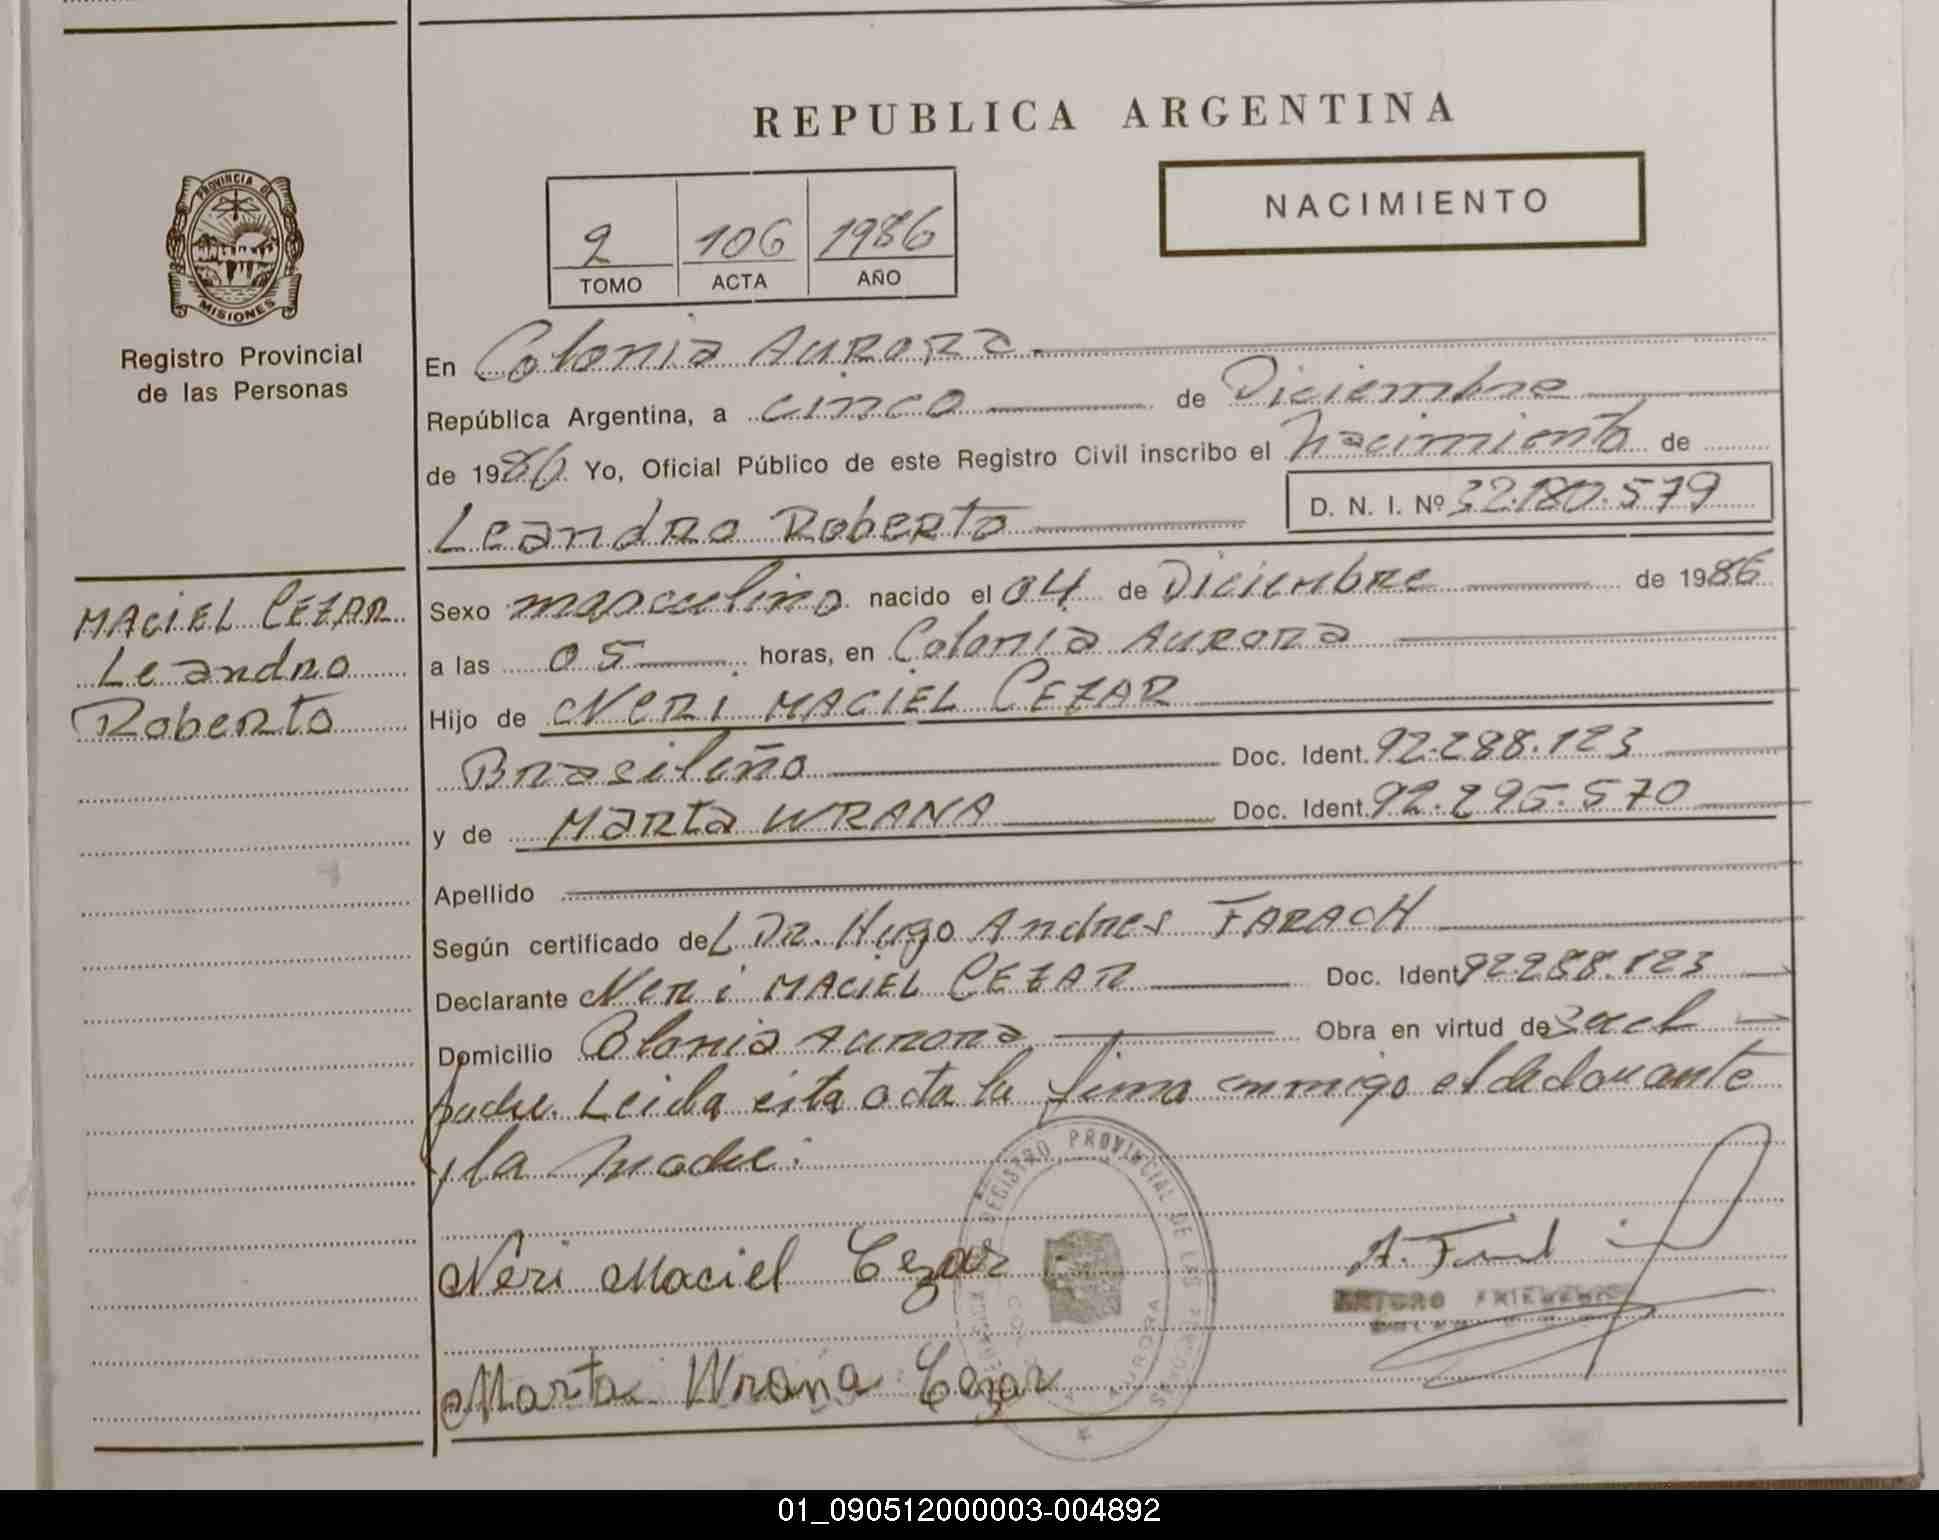 REPUBLICA ARGENTINA
NACIMIENTO
2 106 1986
TOMO ACTA AÑO
PROVINCIA DE
MISIONES
Registro Provincial
de las Personas
En Colonia Aurora
República Argentina, a cinco de Diciembre
de 1986 Yo, Oficial Público de este Registro Civil inscribo el Nacimiento de
Leandro Roberto D. N. I. Nº 32.180.579
MACIEL CEZAR
Leandro
Roberto
Sexo masculino nacido el 04 de Diciembre de 1986
a las 05 horas, en Colonia Aurora
Hijo de Neri MACIEL CEZAR
Brasileño Doc. Ident. 92.288.123
y de Marta WRANA Doc. Ident. 92.295.570
Apellido
Según certificado del Dr. Hugo Andres FARACH
Declarante Neri MACIEL CEZAR Doc. Ident 92.288.123
Domicilio Colonia Aurora Obra en virtud de ser el
padre. Leida esta acta la firma conmigo el declarante
y la madre.
REGISTRO PROVINCIAL DE LAS PERSONAS
AURORA
Neri Maciel Cezar
ARTURO
Marta Wrana Cezar
01_090512000003-004892